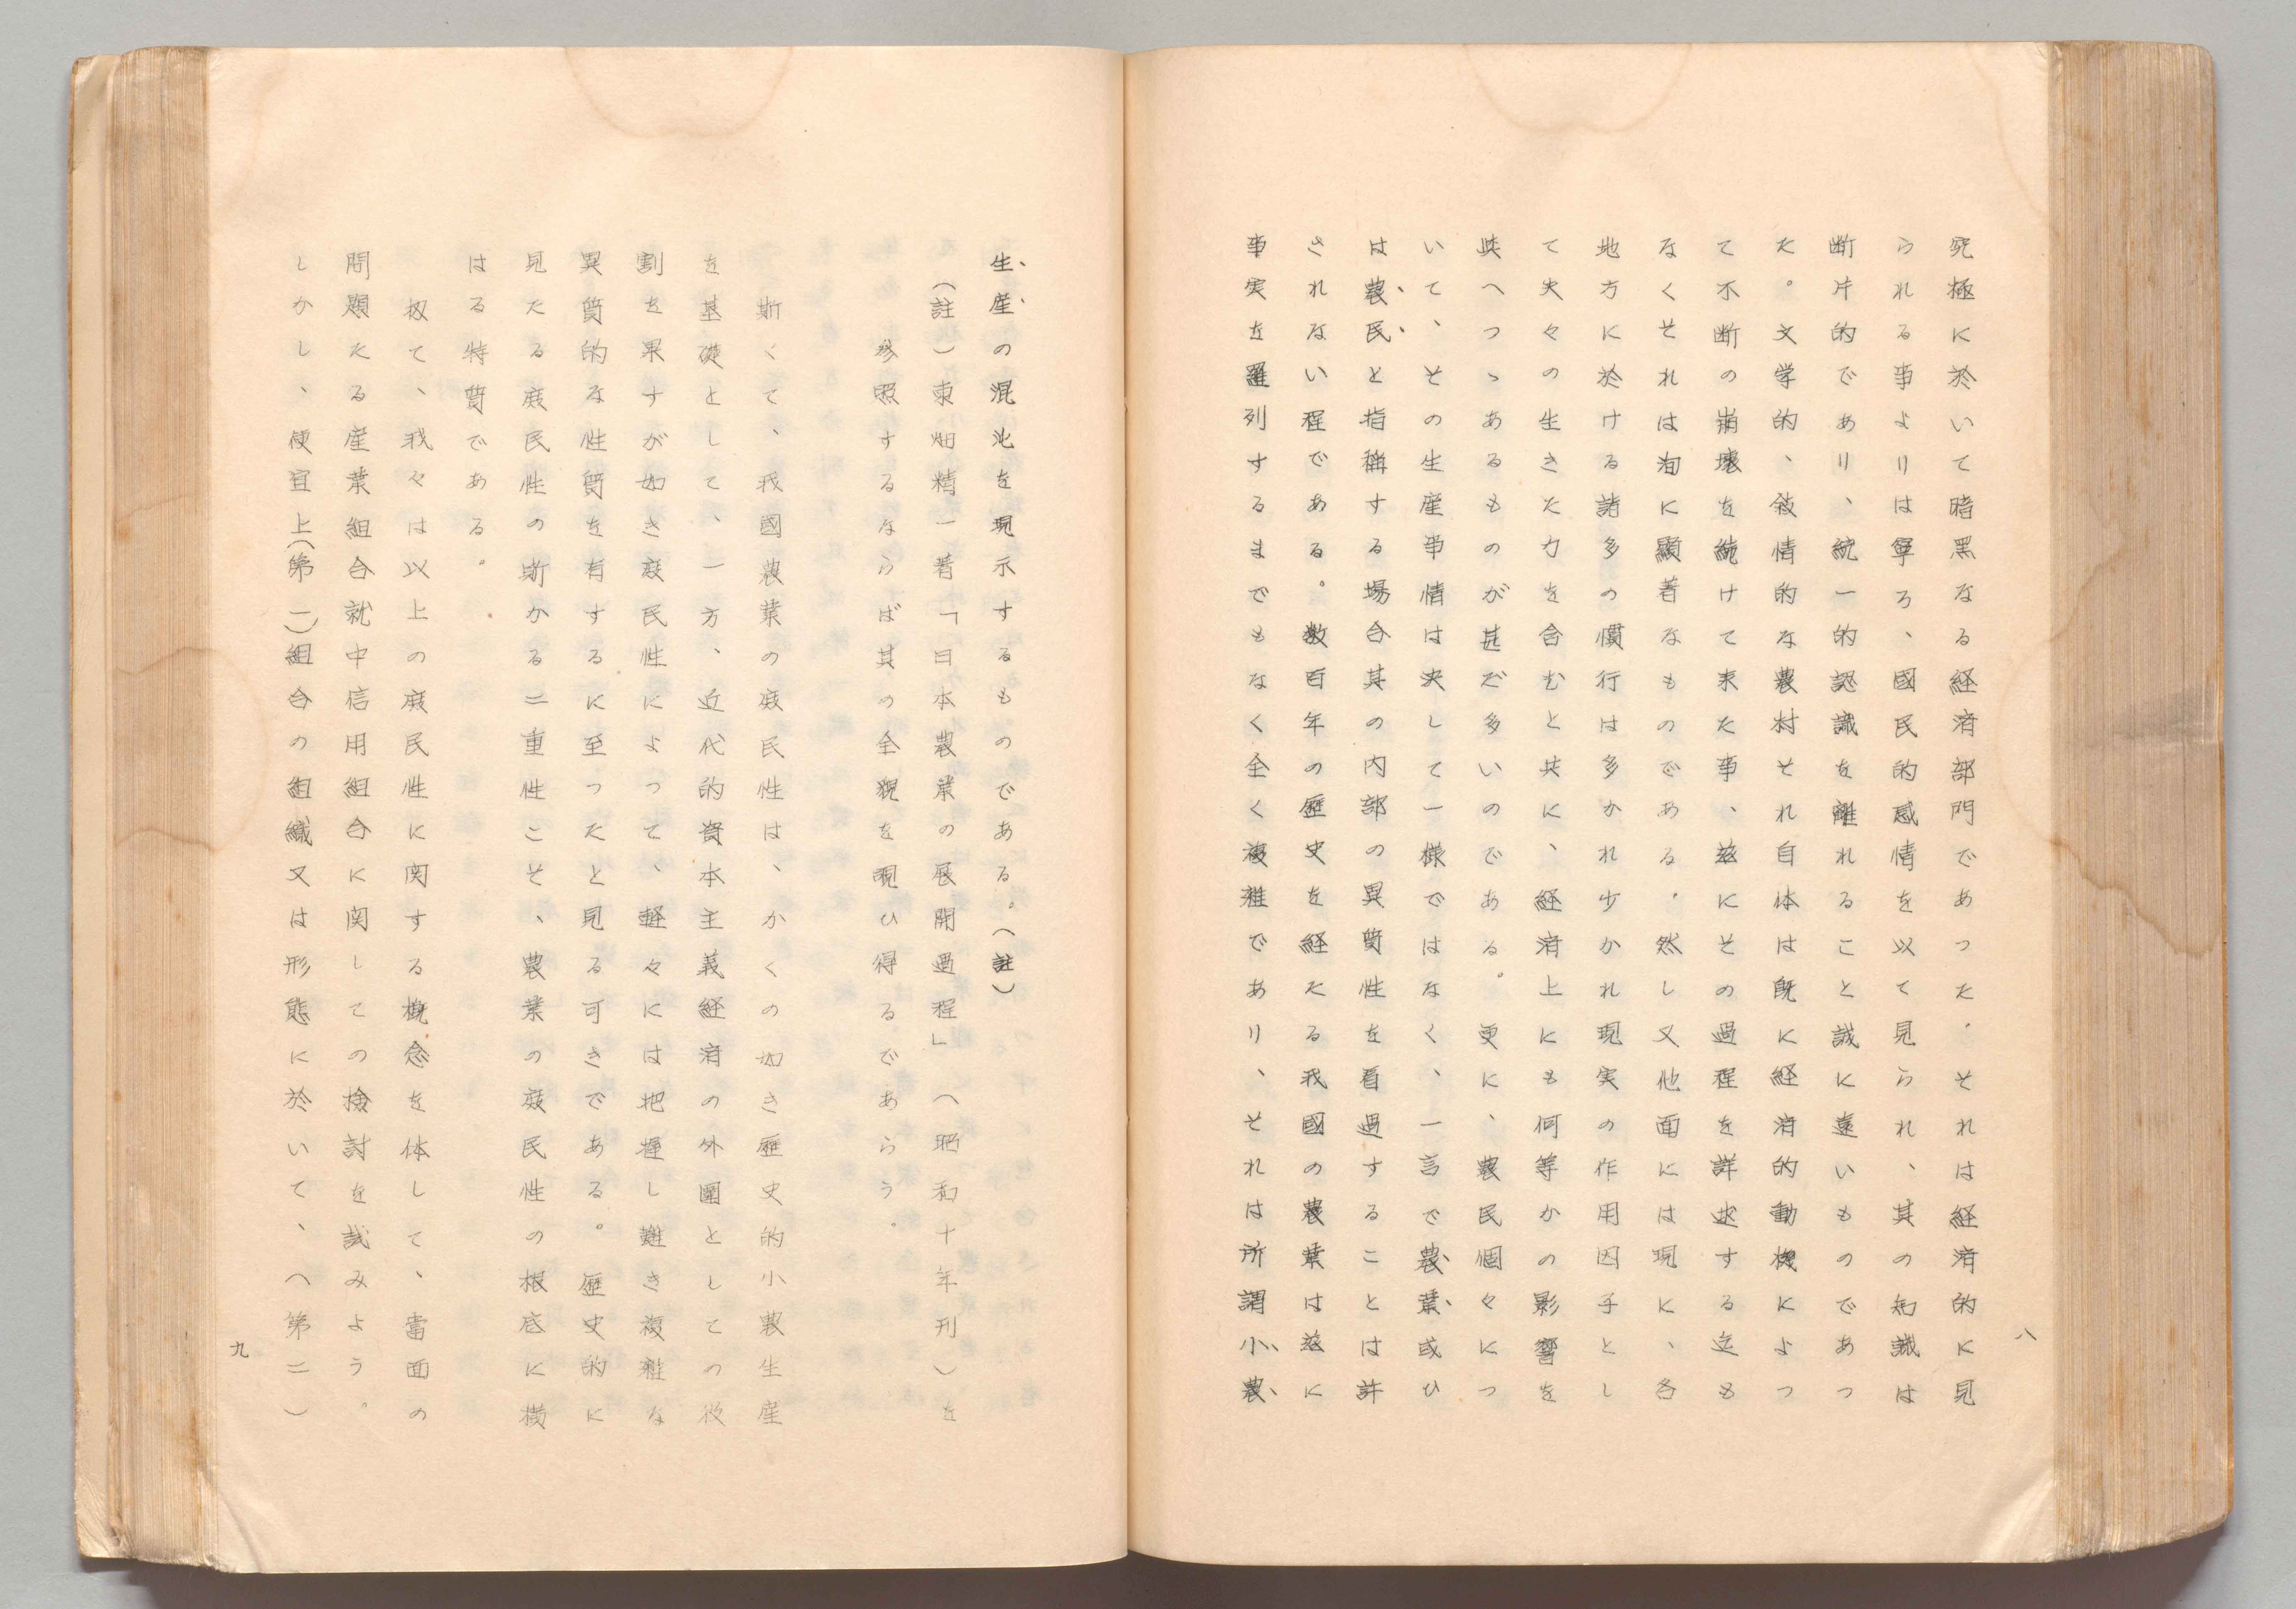 八
究極に於いて暗黒なる経済部門であつた。それは経済的に見
られる事よりは寧ろ、國民的感情を以て見られ、其の知識は
断片的であり、統一的認識を離れること誠に遠いものであつ
た。文学的、敍情的な農村それ自体は既に経済的動機によつ
て不断の崩壊を続けて来た事、茲にその過程を詳述する迄も
なくそれは洵に顯著なものである。然し又他面には現に、各
地方に於ける諸多の慣行は多かれ少かれ現実の作用因子とし
て夫々の生きた力を含むと共に、経済上にも何等かの影響を
与へつゝあるものが甚だ多いのである。更に、農民個々につ
いて、その生産事情は決して一様ではなく、一言で農業或ひ
は農民と指稱する場合其の内部の異質性を看過することは許
されない程である。数百年の歴史を経たる我國の農業は茲に
事実を羅列するまでもなく全く複雑であり、それは所謂小農
生産の混沌を現示するものである。（註）
（註）東畑精一著「日本農業の展開過程」（昭和十年刊）を
参照するならば其の全貌を覗ひ得るであらう。
斯くて、我國農業の庶民性は、かくの如き歴史的小農生産
を基礎として、一方、近代的資本主義経済の外圍としての役
割を果すが如き庶民性によつて、軽々には把握し難き複雑な
異質的な性質を有するに至つたと見る可きである。歴史的に
見たる庶民性の斯かる二重性こそ、農業の庶民性の根底に横
はる特質である。
扨て、我々は以上の庶民性に関する概念を体して、當面の
問題たる産業組合就中信用組合に関しての検討を試みよう。
しかし、便宜上（第一）組合の組織又は形態に於いて、（第二）
九